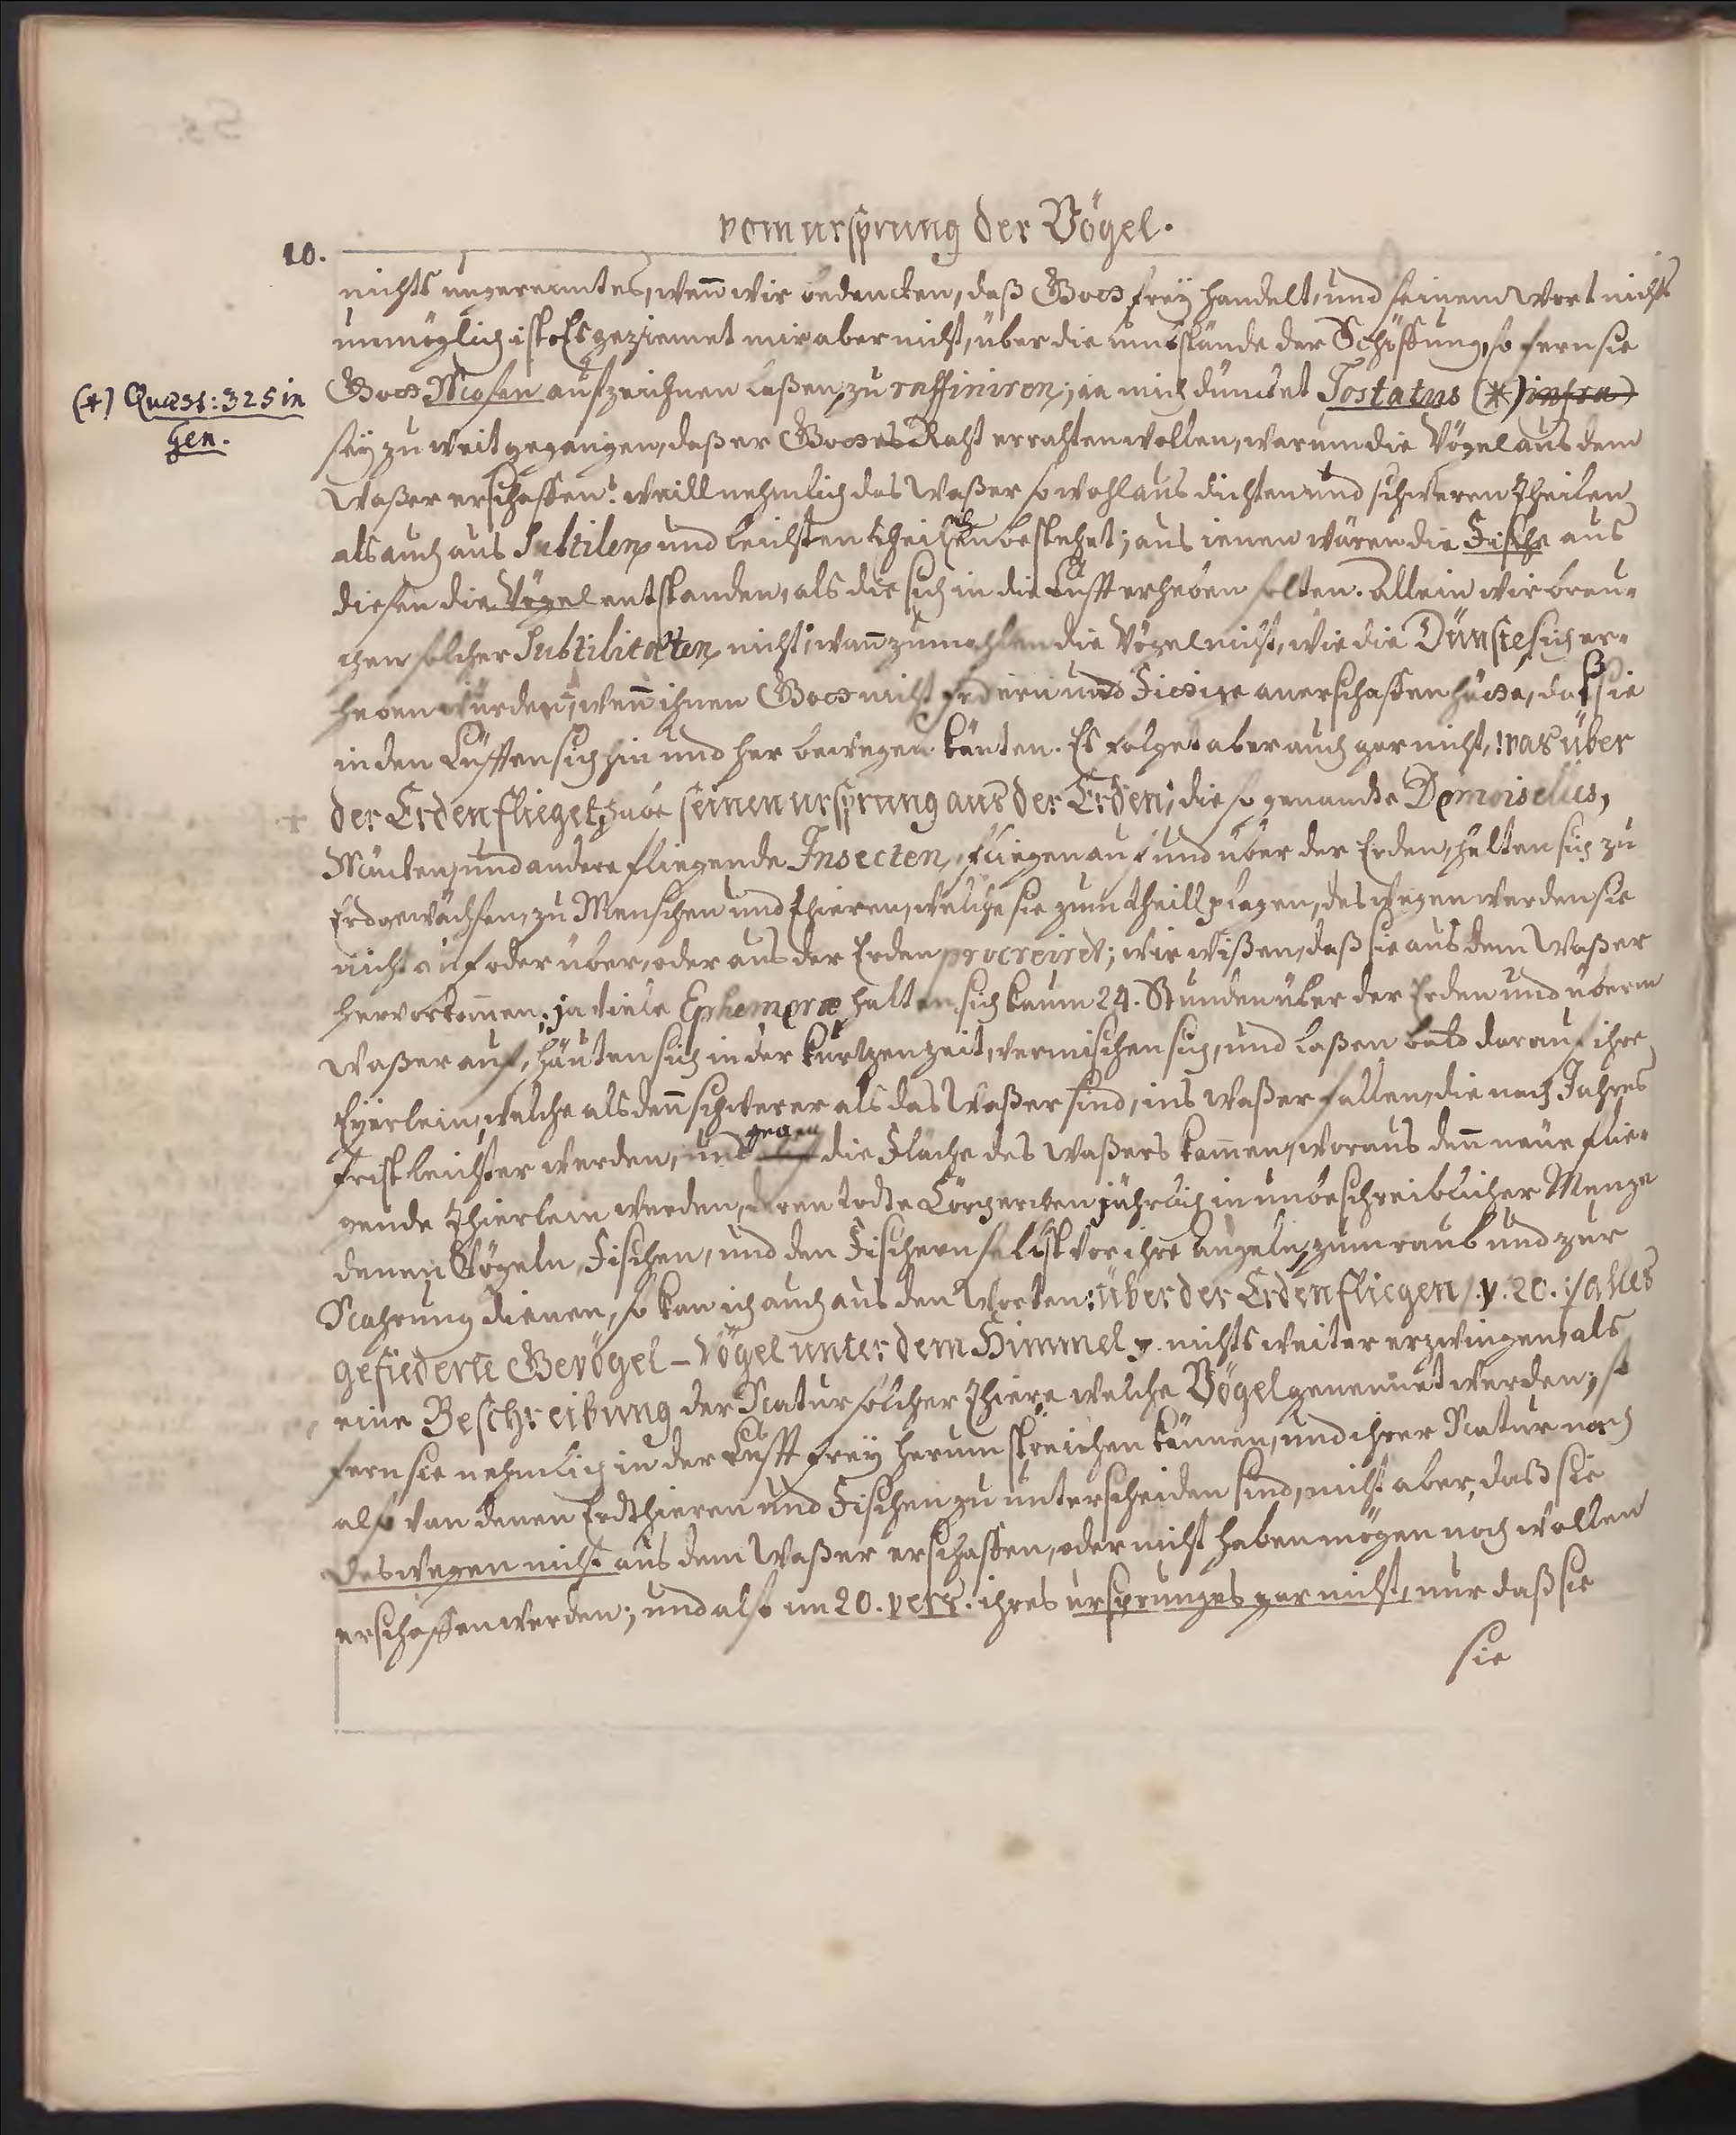 vom ursprung der Vögel.
10.
nichts ungereimtes, weñ wir bedencken, daß Gott frey handelt, und seinem Wort nichts
unmöglich ist. Es geziemet mir aber nicht, über die umbstände der Schöpffung, so fern sie
Gott Mosen aufzeichnen laßen, zu raffiniren; ja mich düncket Tostatus (*) infra)
(*) Quæst: 325 in
Gen.
sey zu weit gegangen, daß er Gottes Raht errahten wollen, warum die Vögel aus dem
Waßer erschaffen? weill nehmlich das Waßer so wohl aus dichten und schweren Theilen
als auch aus subtilen und leichten theilen bestehet; aus ienen wären die Fische aus
diesen die Vögel entstanden, als die sich in die Lufft erheben solten. Allein wir brau-
chen solcher Subtilitæten nicht; wañ zumahlen die Vögel nicht, wie die Dünste sich er-
heben würden, weñ ihnen Gott nicht federn und Fittige anerschaffen hätte, daß sie
in den Lüfften sich hin und her bewegen könten. Es folget aber auch gar nicht, was über
der Erden flieget, habe seinen ursprung aus der Erden; die so genandte Demoiselles,
Mücken, und andere fliegende Insecten, fliegen auf und über der Erden, halten sich zu
Erdgewächsen, zu Menschen und Thieren, welche sie zum theill plagen, deswegen werden sie
nicht auf oder über, oder aus der Erden procreiret; wir wißen, daß sie aus dem Waßer
hervorkom̃en; ja viele Ephemeræ halten sich kaum 24. Stunden über der Erden und überm
Waßer auf, häuten sich in der kurtzen zeit, vermischen sich, und laßen bald darauf ihre
Eyerlein, welche alsdeñ schwerer als das Waßer sind, ins Waßer fallen, die nach Jahres
frist leichter werden, und gegen die Fläche des Waßers kom̃en, woraus deñ neue flie-
gende Thierlein werden, deren todte Cörperchen jährlich in unbeschreiblicher Menge
denen Vögeln, Fischen, und den Fischern selbst vor ihre angeln, zum raub und zur
Nahrung dienen, so kan ich auch aus den Worten: über der Erden fliegen /. v. 20. :/ alles
gefiederte Gevögel – Vögel unter dem Himmel p. nichts weiter erzwingen, als
eine Beschreibung der Natur solcher Thiere welche Vögel genennet werden; so
fern sie nehmlich in der Lufft frey herum streichen können, und ihrer Natur nach
also von denen Erdthieren und Fischen zu unterscheiden sind, nicht aber, daß sie
deswegen nicht aus dem Waßer erschaffen, oder nicht haben mögen noch wollen
erschaffen werden; und also im 20. vers. ihres ursprunges gar nicht, nur daß sie
sie